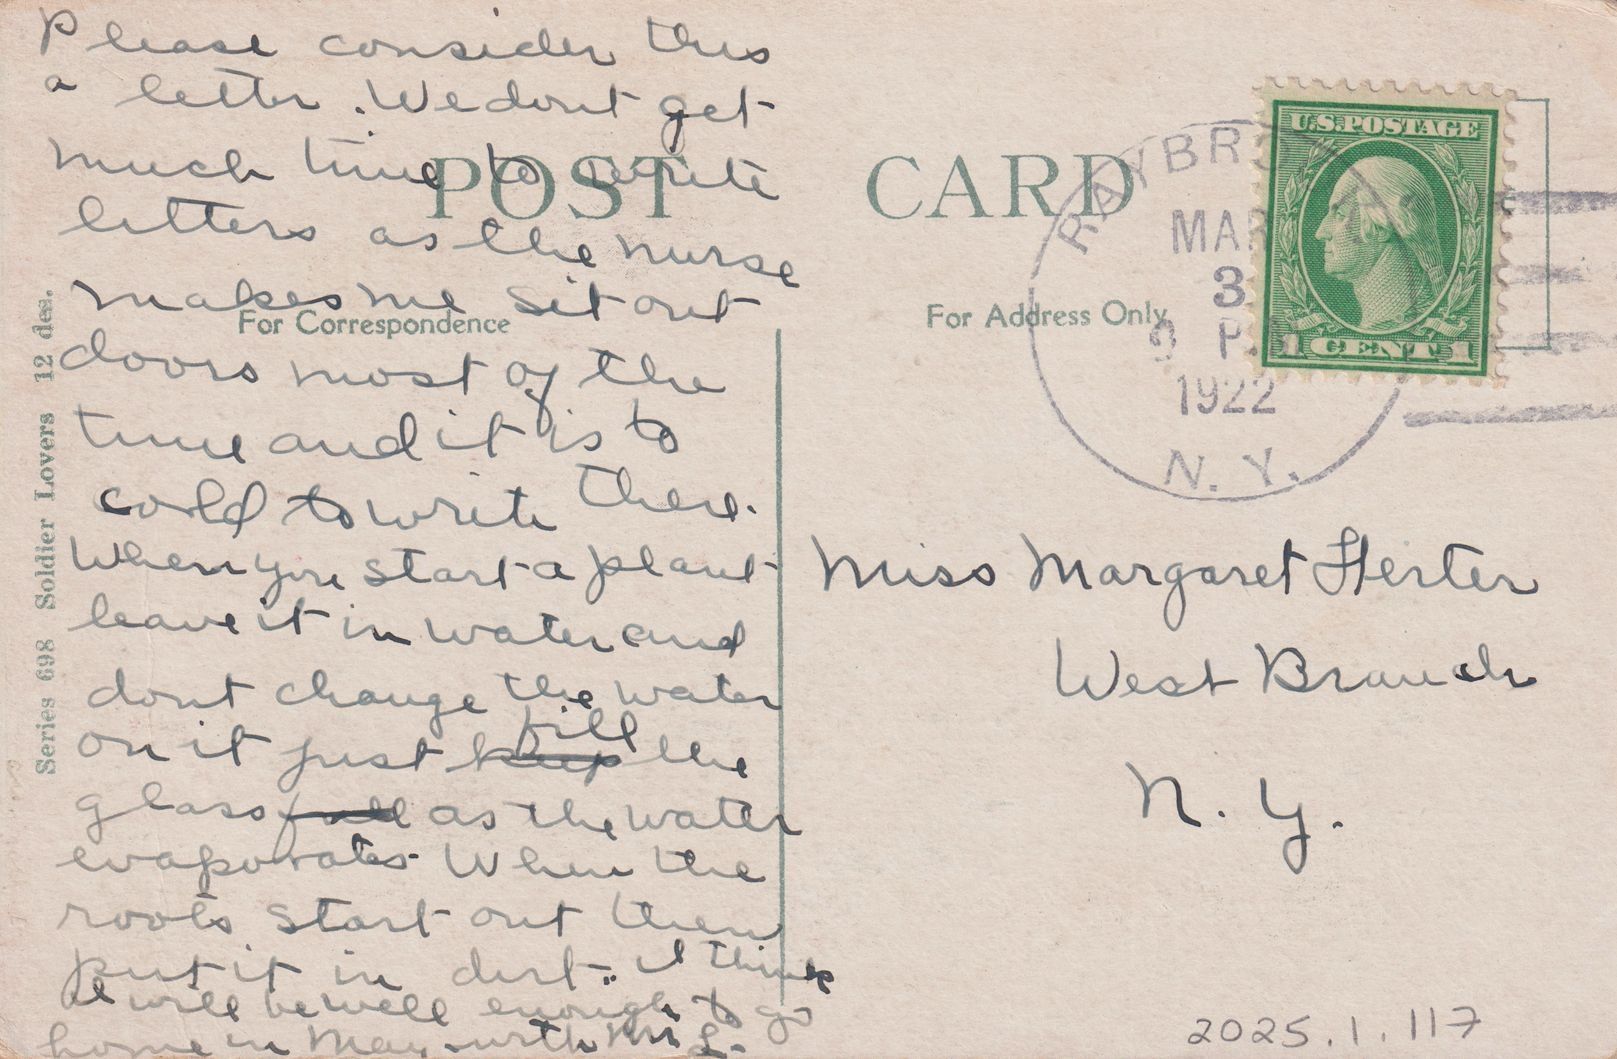 Please consider this
a letter. We dont get
much time to write
letters as the nurse
makes me sit out
doors most of the
time and it is to
cold to write there.
When you start a plant
leave it in water and
dont change the water
on it just keep fill the
glass full as the water
evaporates. When the
roots start out then
put it in dirt. I think
I will be well enough to go
home in May with Mrs L.
POST CARD
For Correspondence
For Address Only
Series 698 Soldier Lovers 12 des.
U.S.POSTAGE
1 CENT 1
MAR
3
9 P.M
1922
N. Y.
Miss Margaret Herter
West Branch
N. Y.
2025.1.117